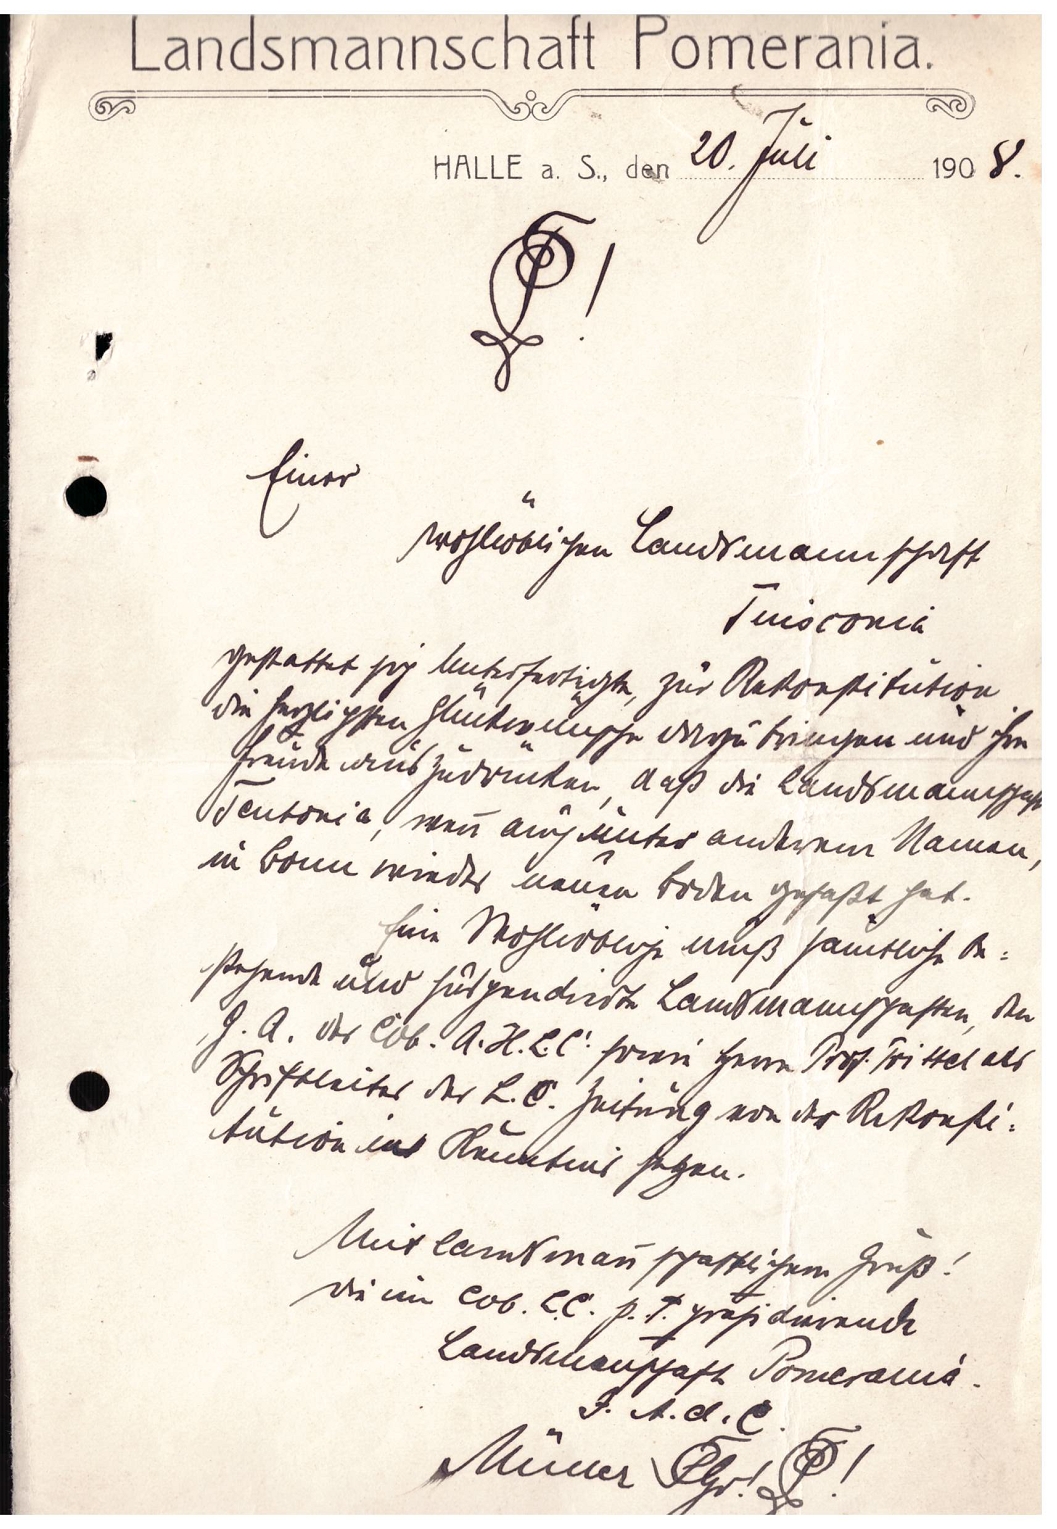 Landsmannschaft Pomerania.
HALLE a. S., den 20. Juli 1908.
Einer
wohllöblichen Landsmannschaft
Tuisconia
gestattet sich Unterfertigte, zur Rekonstitution
die herzlichsten Glückwünsche darzubringen und ihre
Freude auszudrücken, daß die Landsmannschaft
Teutonia, wenn auch unter anderem Namen,
in Bonn wieder neuen Boden gefaßt hat.
Eine Wohllöbliche muß sämtliche be-
stehende und suspendierte Landsmannschaften, den
G. A. des Cob. A. H. L. C. sowie Herrn Prof. Trittel als
Schriftleiter der L. C. Zeitung von der Rekonsti-
tution in Kenntnis setzen.
Mit landsmannschaftlichem Gruß!
die im Cob. L.C. p. t. präsidierende
Landsmannschaft Pomerania.
I. A. d. C.